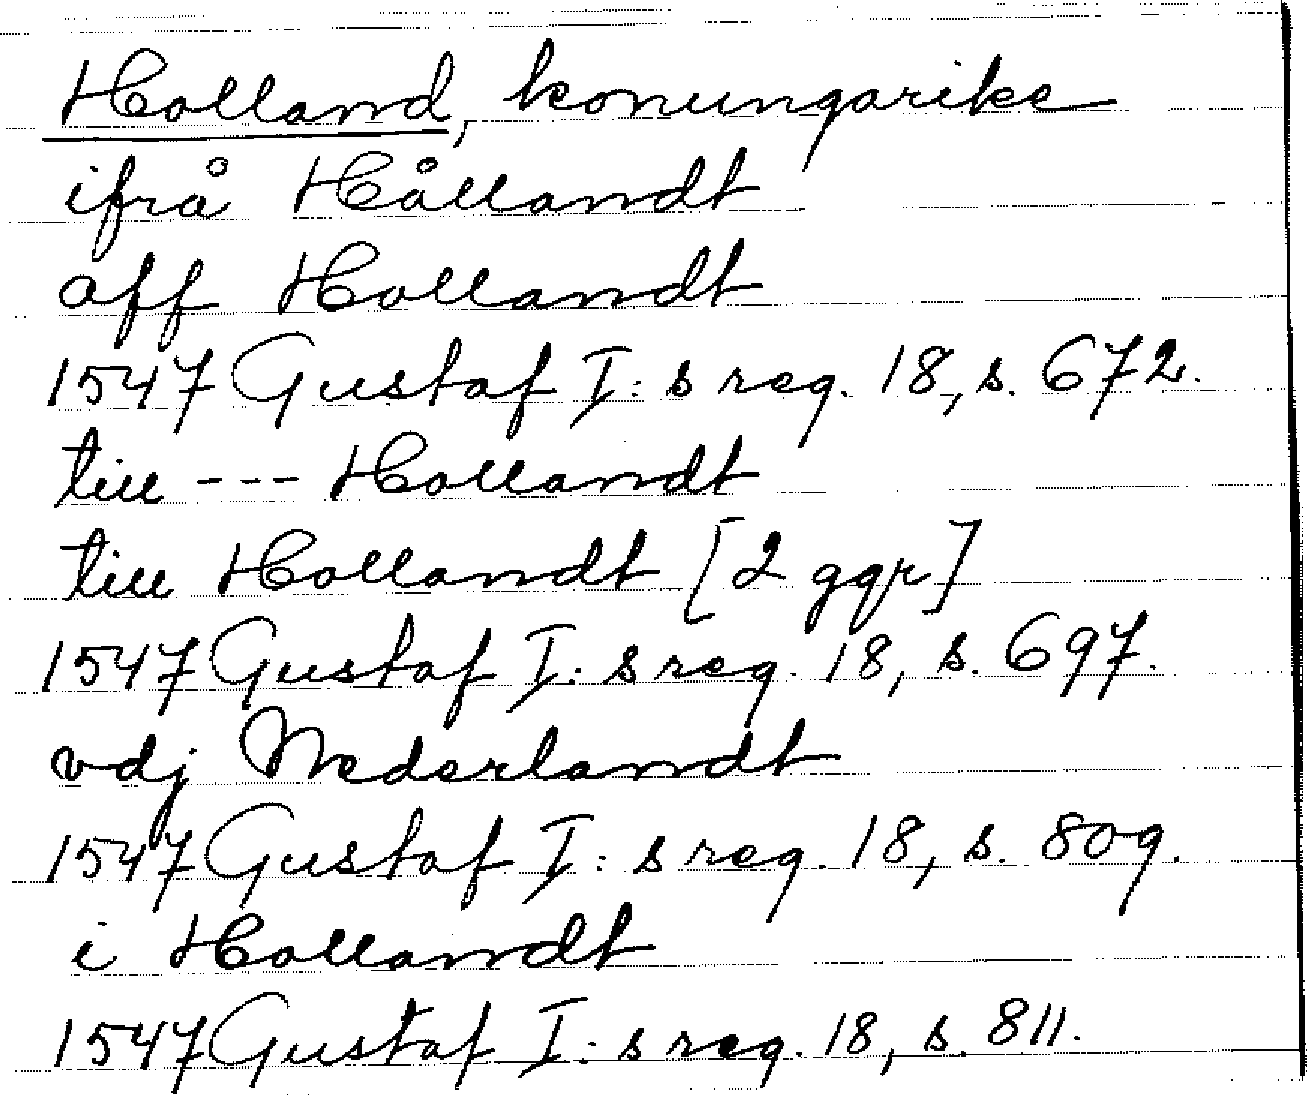 Holland, konungarike
ifrå Hållandt
aff Hollandt
1547 Gustaf I:s reg. 18, s. 672.
till --- Hollandt
till Hollandt [2 ggr]
1547 Gustaf I:s reg. 18, s. 697.
vdj Nederlandt
1547 Gustaf I:s reg. 18, s. 809.
i Hollandt
1547 Gustaf I:s reg. 18, s. 811.